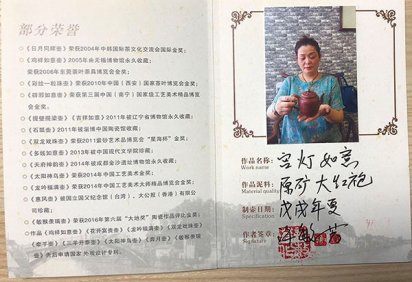 部分荣誉
《日月同辉壶》荣获2004年中韩国际茶文化交流会国际金奖;
《鸿祥如意壶》2005年由无锡博物馆永久收藏;
荣获2006年至美茶叶茶具博览会金奖;
《彩绘一粒珠壶》荣获2010年中国(西安)国家茶叶博览会金奖;
荣获第三届中国(南宁)国家级工艺美术精品博览
会金奖;
《提璧提梁壶》《吉祥如意》2011年被辽宁省博物馆永久收藏;
《石瓢壶》2011年被淄博中国陶瓷馆收藏;
《双龙戏珠壶》荣获2011紫砂艺术品博览会“星海杯”金奖;
《多钱如意壶》2013年被中国现代文学馆珍藏;
《天府神韵壶》2014年被成都金沙遗址博物馆永久收藏;
《太阳神鸟壶》荣获2014年中国工艺美术金奖;
《龙吟福满壶》荣获2014年中国工艺美术大师精品博览会金奖;
《惠风壶》被国立国父纪念馆(台湾)、大公报(香港)有限公
司珍藏;
《敏猴奈瑞壶》荣获2016年第六届“大地奖”陶瓷作品评比金奖;
作品《鸿祥如意壶》《花开富贵壶》《龙吟福满壶》《双龙戏珠壶》
《牵手壶》《三羊开泰壶》《太阳神鸟壶》《弄月壶》《敏猴奈瑞
壶》先后申请国家外观设计专利。
作品名称: 宫灯如意
Work name
作品泥料: 原矿大红袍
Material quality
制壶日期: 戊戌年夏
Specification
作者签章:
Signature